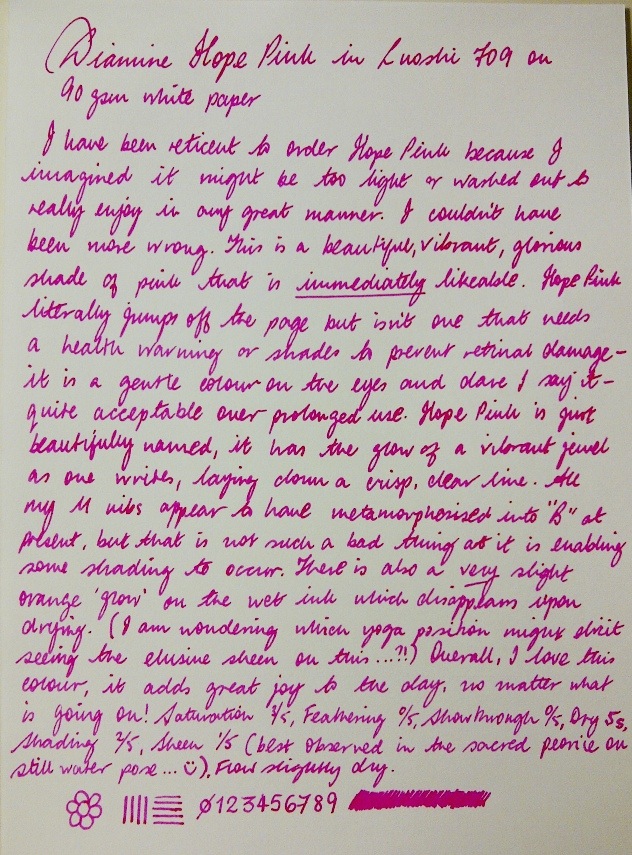 Diamine Hope Pink in Luoshi 709 on
90 gsm white paper
I have been reticent to order Hope Pink because I
imagined it might be too light or washed out to
really enjoy in any great manner. I couldn't have
been more wrong. This is a beautiful, vibrant, glorious
shade of pink that is immediately likeable. Hope Pink
literally jumps off the page but isn't one that needs
a health warning or shades to prevent retinal damage-
it is a gentle colour on the eyes and dare I say it-
quite acceptable over prolonged use. Hope Pink is just
beautifully named, it has the glow of a vibrant jewel
as one writes, laying down a crisp, clear line. All
my M nibs appear to have metamorphosised into "B" at
present, but that is not such a bad thing as it is enabling
some shading to occur. There is also a very slight
orange 'glow' on the wet ink which disappears upon
drying. (I am wondering which yoga position might elicit
seeing the elusive sheen on this...?!!) Overall, I love this
colour, it adds great joy to the day, no matter what
is going on! Saturation /5, Feathering 0/5, Showthrough 0/5, Dry 5s,
Shading 2/5, Sheen 1/5 (best observed in the sacred on
still water pose... ☺), Flow slightly dry.
0123456789